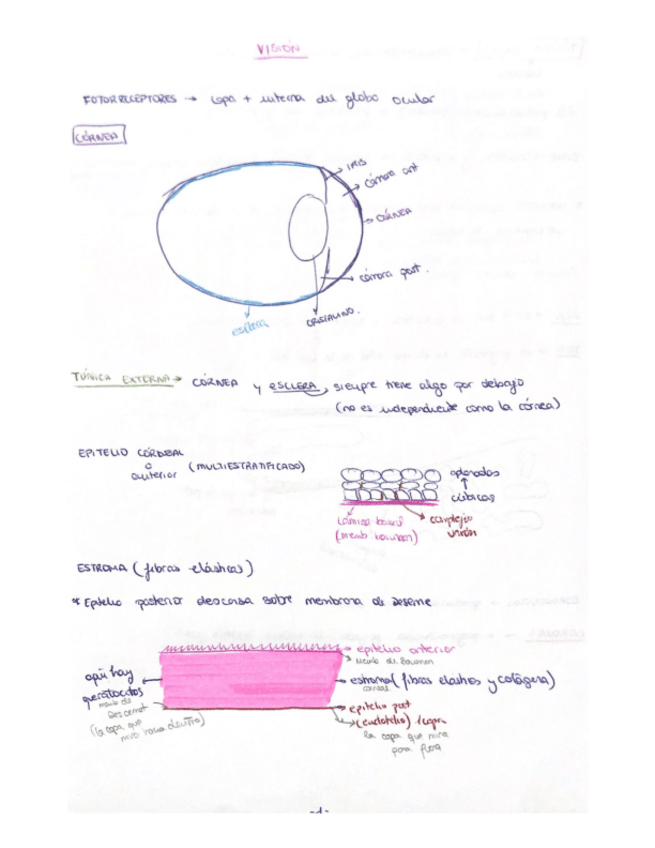 VISIÓN
FOTORRECEPTORES → capa + interna del globo ocular
CÓRNEA
IRIS
cámara ant
CÓRNEA
cámara post.
CRISTALINO.
esclera
TÚNICA EXTERNA → CÓRNEA y ESCLERA, siempre tiene algo por debajo
(no es independiente como la córnea)
EPITELIO CORNEAL
o
anterior
(MULTIESTRATIFICADO)
aplanados
↑
cúbicas
lámina basal
(memb bowman)
complejo
unión
ESTROMA (fibras elásticas)
* Epitelio posterior descansa sobre membrana de deseme
epitelio anterior
memb de Bowman
aquí hay
queratocitos
estroma (fibras elastics y colágena)
corneal
memb de
Descemet
(la capa que
mira hacia dentro)
epitelio post
(endotelio) 1capa
la capa que mira
para fuera
-1-